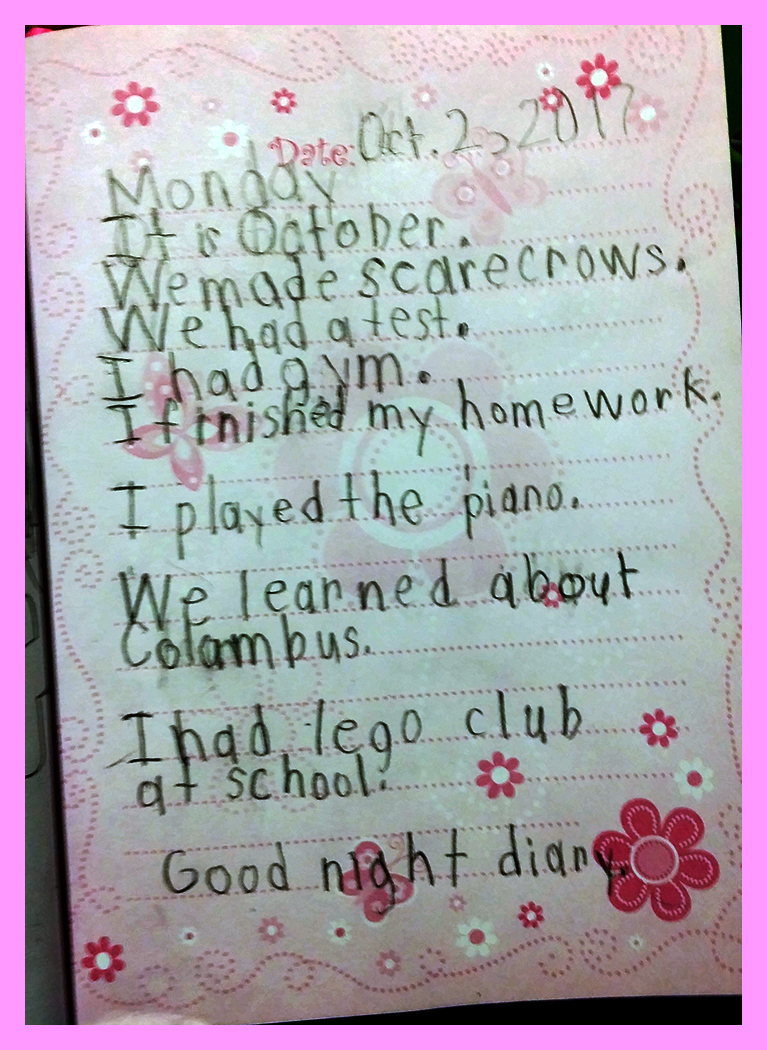 Date: Oct. 2, 2017
Monday
It is October.
We made scarecrows.
We had a test.
I had gym.
I finished my homework.
I played the piano.
We learned about
Colambus.
I had lego club
at school.
Good night diary.